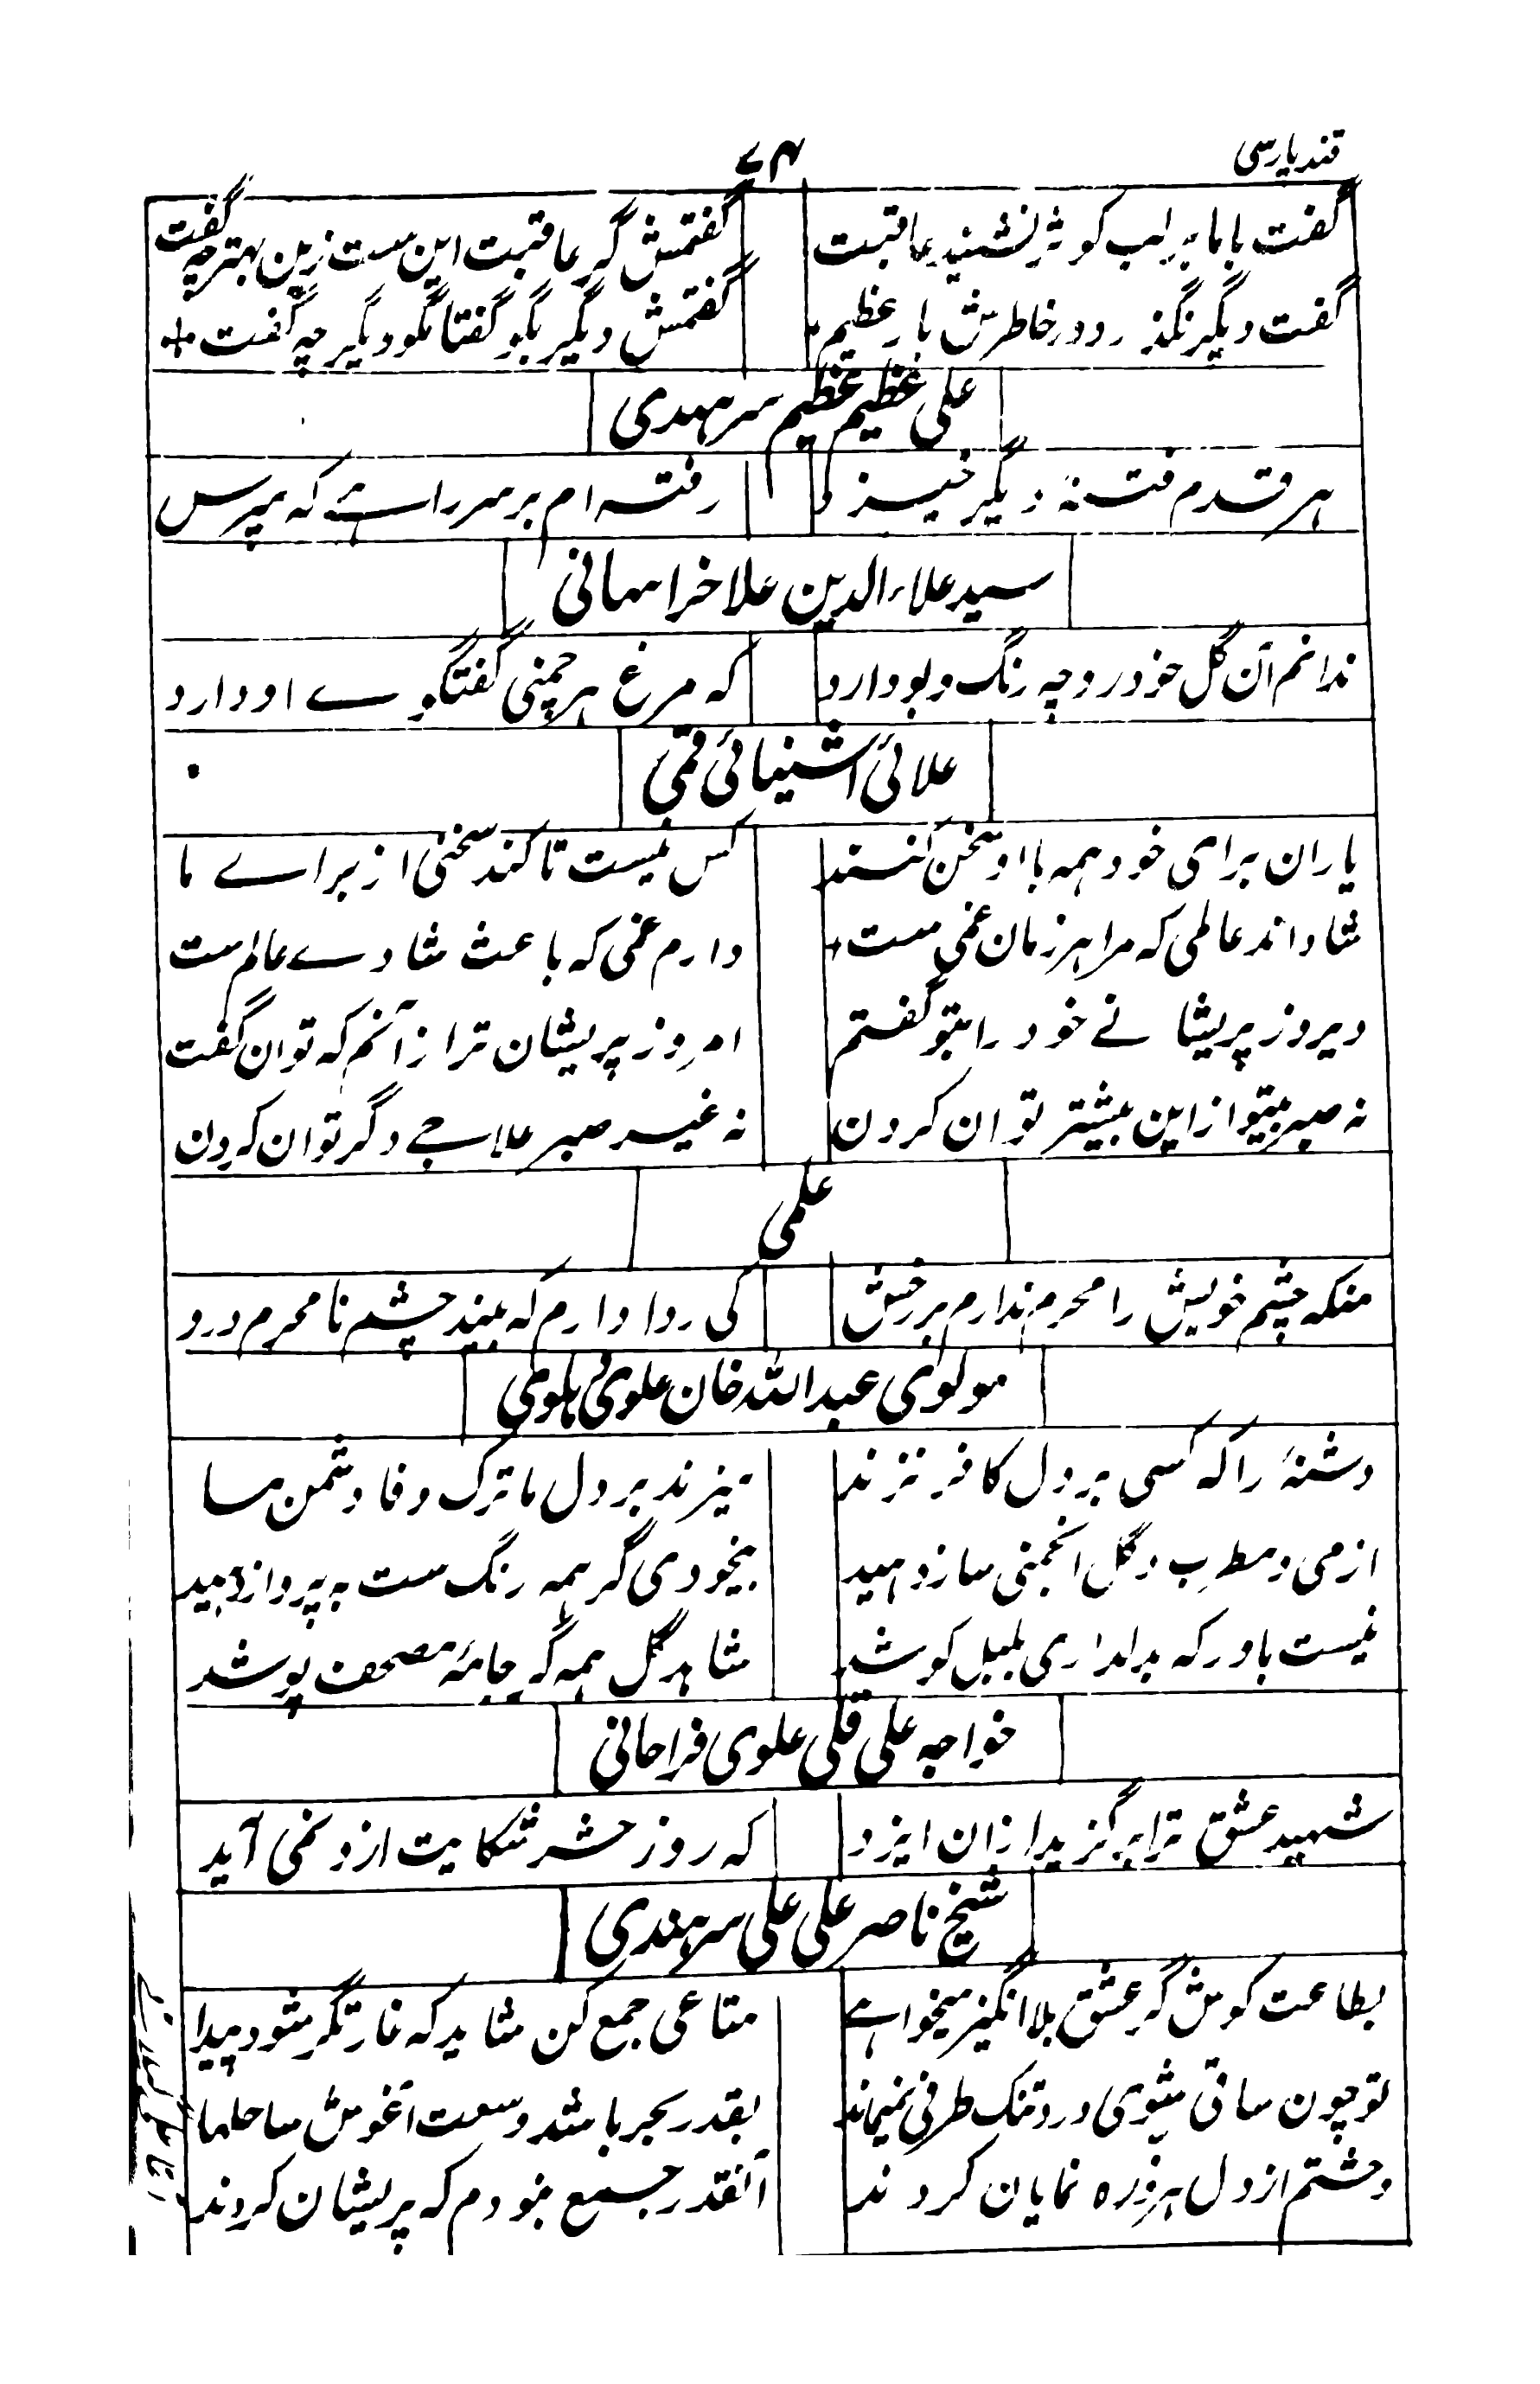 قند پارسی
۷۴
گفت بابا بر لب کوثر نشیند عاقبت
گفتمش گر عاقبت این ست زین بهتر چه گفت
گفت دیگر نگذرد در خاطرش یار عظیم
گفتمش دیگر بگو گفتا مگو دیگر چه گفت
علی عظیم عظیم سرهندی
هر قدم فتنهٔ دیگر خیزد
رفته ام بر سر راهے که مپرس
سید علاء الدین علا خراسانی
ندانم آن گل خودرو چه رنگ و بو دارد
که مرغ هر چمنی گفتگوے او دارد
علائی اشتیهائی قمی
یاران برای خود همه با او سخن کنند
کس نیست تا کند سخنی از براے ما
شاداند عالمی که مرا هر زمان غمی ست
دارم غمی که باعث شادے عالم ست
دیروز پریشانے خود را بتو گفتم
امروز پریشان تر از آنم که توان گفت
نه صبر بیتو ازین بیشتر توان کردن
نه غیر صبر علاجے دگر توان کردن
علمی
منکه چشم خویش را محرم ندارم بر رخش
کی روا دارم که بیند چشم نا محرم درو
مولوی عبدالله خان علوی
دشنهٔ را که کسی بر دل کافر نزند
میزند بر دل ما ترک وفا دشمن ما
از می و مطرب و گل انجمنی ساز دهید
بیخودی گر همه رنگ ست به پرواز دهید
نیست باور که بدلداری بلبل کوشد
شاهد گل همه گر جامهٔ مصحف پوشد
خواجه علی قلی علوی فراهانی
شهید عشق ترا برگزید ازان ایزد
که روز حشر شکایت ازو نمی آید
شیخ ناصر علی علی سرهندی
بطاعت کوش گر عشق بلا انگیز میخواهے
متاعی جمع کن شاید که غارتگر شود پیدا
تو چون ساقی شوی درد تنک ظرفی نمیماند
بقدر بحر باشد وسعت آغوش ساحلها
وحشتم از دل هر ذره نمایان کردند
آنقدر جمع نبودم که پریشان کردند